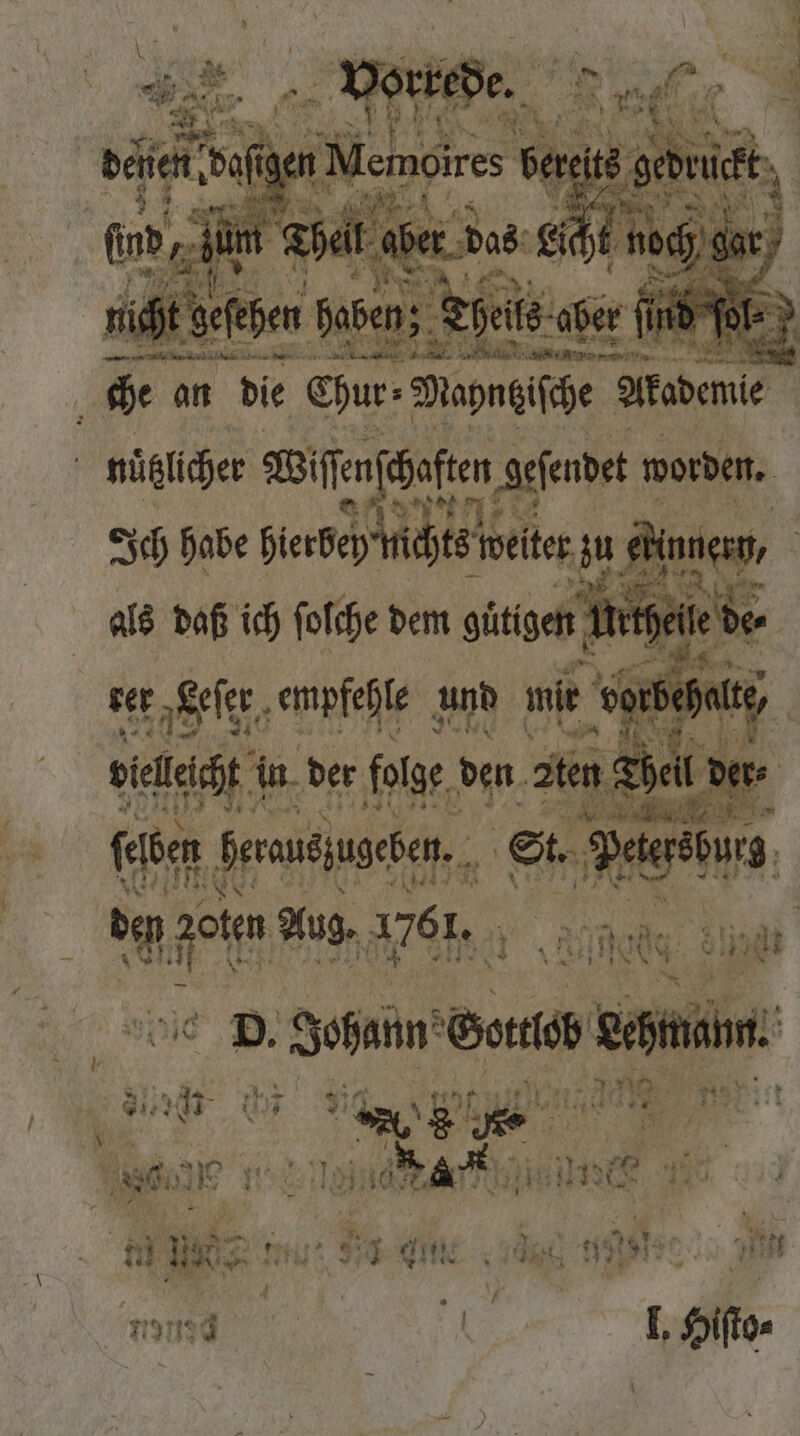 Vorrede.
denen daſigen Memoires bereits gedruckt
ſind, zum Theil aber das Licht noch gar
nicht geſehen haben; Theils aber ſind ſol-
che an die Chur-Mayntziſche Akademie
nuͤtzlicher Wiſſenſchaften geſendet worden.
Ich habe hierbey nichts weiter zu erinnern,
als daß ich ſolche dem guͤtigen Urtheile de-
rer Leſer empfehle und mir vorbehalte,
vielleicht in der folge den 2ten Theil der-
ſelben herauszugeben. St. Petersburg
den 20ten Aug. 1761.
D. Johann Gottlob Lehmann.
I. Hiſto-